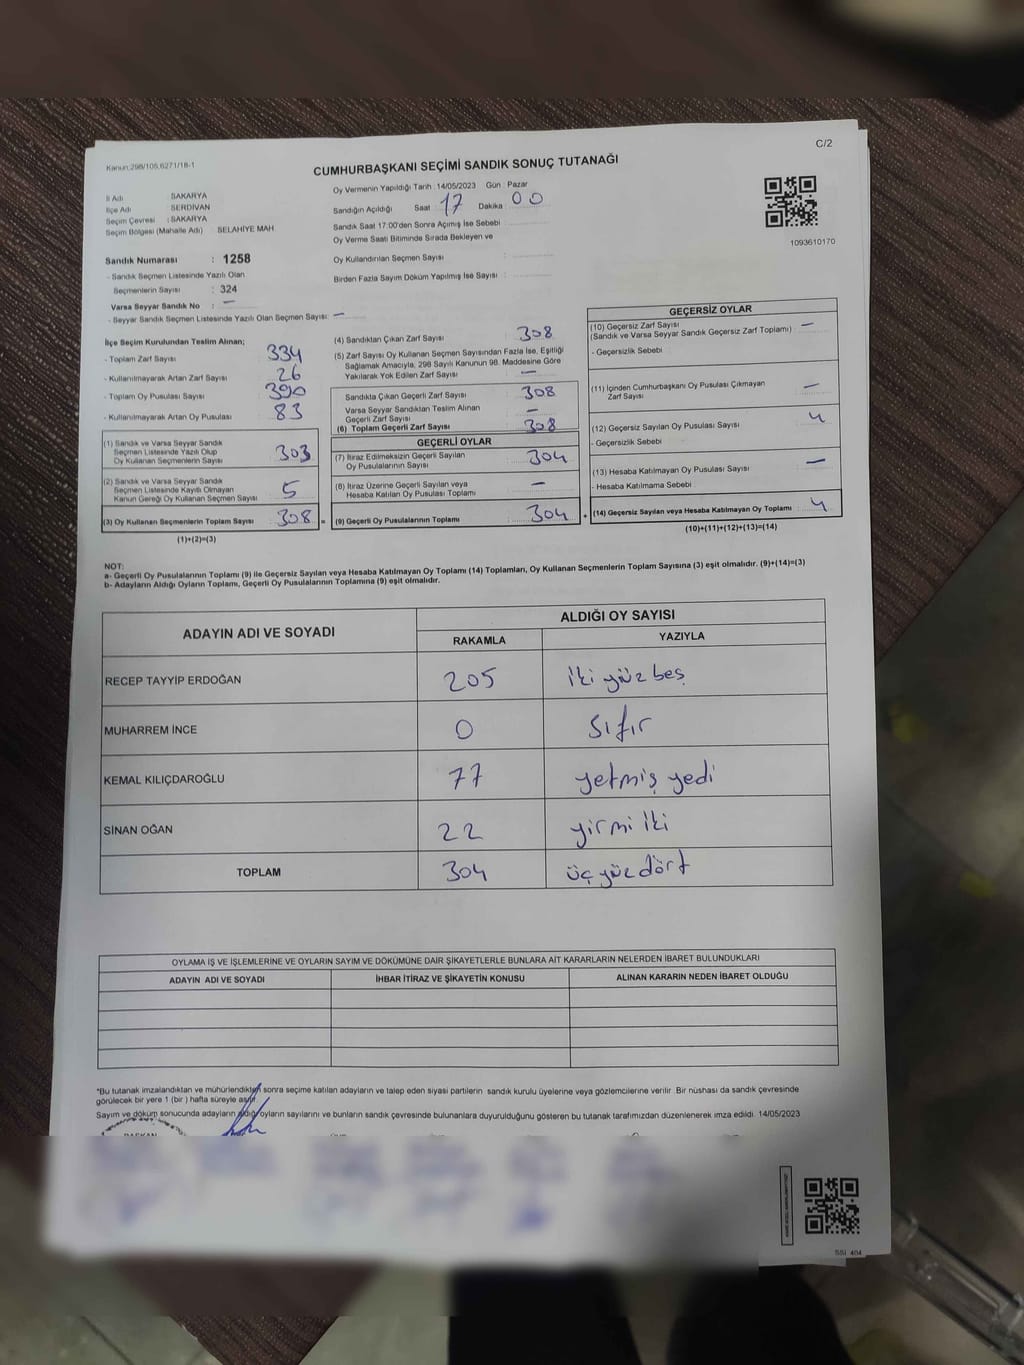 Kanun:298/105,6271/18-1
C/2
CUMHURBAŞKANI SEÇİMİ SANDIK SONUÇ TUTANAĞI
İl Adı : SAKARYA
İlçe Adı SERDİVAN
Seçim Çevresi : SAKARYA
Seçim Bölgesi (Mahalle Adı) SELAHİYE MAH.
Sandık Numarası : 1258
- Sandık Seçmen Listesinde Yazılı Olan
Seçmenlerin Sayısı : 324
Varsa Seyyar Sandık No : —
- Seyyar Sandık Seçmen Listesinde Yazılı Olan Seçmen Sayısı: —
Oy Vermenin Yapıldığı Tarih :14/05/2023 Gün : Pazar
Sandığın Açıldığı Saat 17 Dakika 00
Sandık Saat 17:00'den Sonra Açımış İse Sebebi
Oy Verme Saati Bitiminde Sırada Bekleyen ve
Oy Kullandırılan Seçmen Sayısı :
Birden Fazla Sayım Döküm Yapılmış İse Sayısı :
1093610170
İlçe Seçim Kurulundan Teslim Alınan;
- Toplam Zarf Sayısı 334
- Kullanılmayarak Artan Zarf Sayısı 26
- Toplam Oy Pusulası Sayısı 390
- Kullanılmayarak Artan Oy Pusulası 83
(1) Sandık ve Varsa Seyyar Sandık
Seçmen Listesinde Yazılı Olup
Oy Kullanan Seçmenlerin Sayısı 303
(2) Sandık ve Varsa Seyyar Sandık
Seçmen Listesinde Kayıtlı Olmayan
Kanun Gereği Oy Kullanan Seçmen Sayısı 5
(3) Oy Kullanan Seçmenlerin Toplam Sayısı 308 =
(1)+(2)=(3)
(4) Sandıktan Çıkan Zarf Sayısı 308
(5) Zarf Sayısı Oy Kullanan Seçmen Sayısından Fazla İse, Eşitliği
Sağlamak Amacıyla, 298 Sayılı Kanunun 98. Maddesine Göre
Yakılarak Yok Edilen Zarf Sayısı —
Sandıkta Çıkan Geçerli Zarf Sayısı 308
Varsa Seyyar Sandıktan Teslim Alınan
Geçerli Zarf Sayısı —
(6) Toplam Geçerli Zarf Sayısı 308
GEÇERLİ OYLAR
(7) İtiraz Edilmeksizin Geçerli Sayılan
Oy Pusulalarının Sayısı 304
(8) İtiraz Üzerine Geçerli Sayılan veya
Hesaba Katılan Oy Pusulası Toplamı —
(9) Geçerli Oy Pusulalarının Toplamı 304 +
GEÇERSİZ OYLAR
(10) Geçersiz Zarf Sayısı
(Sandık ve Varsa Seyyar Sandık Geçersiz Zarf Toplamı) : —
- Geçersizlik Sebebi
(11) İçinden Cumhurbaşkanı Oy Pusulası Çıkmayan
Zarf Sayısı —
(12) Geçersiz Sayılan Oy Pusulası Sayısı 4
- Geçersizlik Sebebi
(13) Hesaba Katılmayan Oy Pusulası Sayısı —
- Hesaba Katılmama Sebebi
(14) Geçersiz Sayılan veya Hesaba Katılmayan Oy Toplamı 4
(10)+(11)+(12)+(13)=(14)
NOT:
a- Geçerli Oy Pusulalarının Toplamı (9) ile Geçersiz Sayılan veya Hesaba Katılmayan Oy Toplamı (14) Toplamları, Oy Kullanan Seçmenlerin Toplam Sayısına (3) eşit olmalıdır. (9)+(14)=(3)
b- Adayların Aldığı Oyların Toplamı, Geçerli Oy Pusulalarının Toplamına (9) eşit olmalıdır.
ADAYIN ADI VE SOYADI
ALDIĞI OY SAYISI
RAKAMLA YAZIYLA
RECEP TAYYİP ERDOĞAN 205 iki yüz beş
MUHARREM İNCE 0 sıfır
KEMAL KILIÇDAROĞLU 77 yetmiş yedi
SİNAN OĞAN 22 yirmi iki
TOPLAM 304 üç yüz dört
OYLAMA İŞ VE İŞLEMLERİNE VE OYLARIN SAYIM VE DÖKÜMÜNE DAİR ŞİKAYETLERLE BUNLARA AİT KARARLARIN NELERDEN İBARET BULUNDUKLARI
ADAYIN ADI VE SOYADI İHBAR İTİRAZ VE ŞİKAYETİN KONUSU ALINAN KARARIN NEDEN İBARET OLDUĞU
*Bu tutanak imzalandıktan ve mühürlendikten sonra seçime katılan adayların ve talep eden siyasi partilerin sandık kurulu üyelerine veya gözlemcilerine verilir. Bir nüshası da sandık çevresinde
görülecek bir yere 1 (bir ) hafta süreyle asılır.
Sayım ve döküm sonucunda adayların aldığı oyların sayılarını ve bunların sandık çevresinde bulunanlara duyurulduğunu gösteren bu tutanak tarafımızdan düzenlenerek imza edildi. 14/05/2023
BAŞKAN